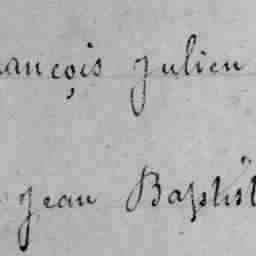 ançois Julien
Jean Baptist